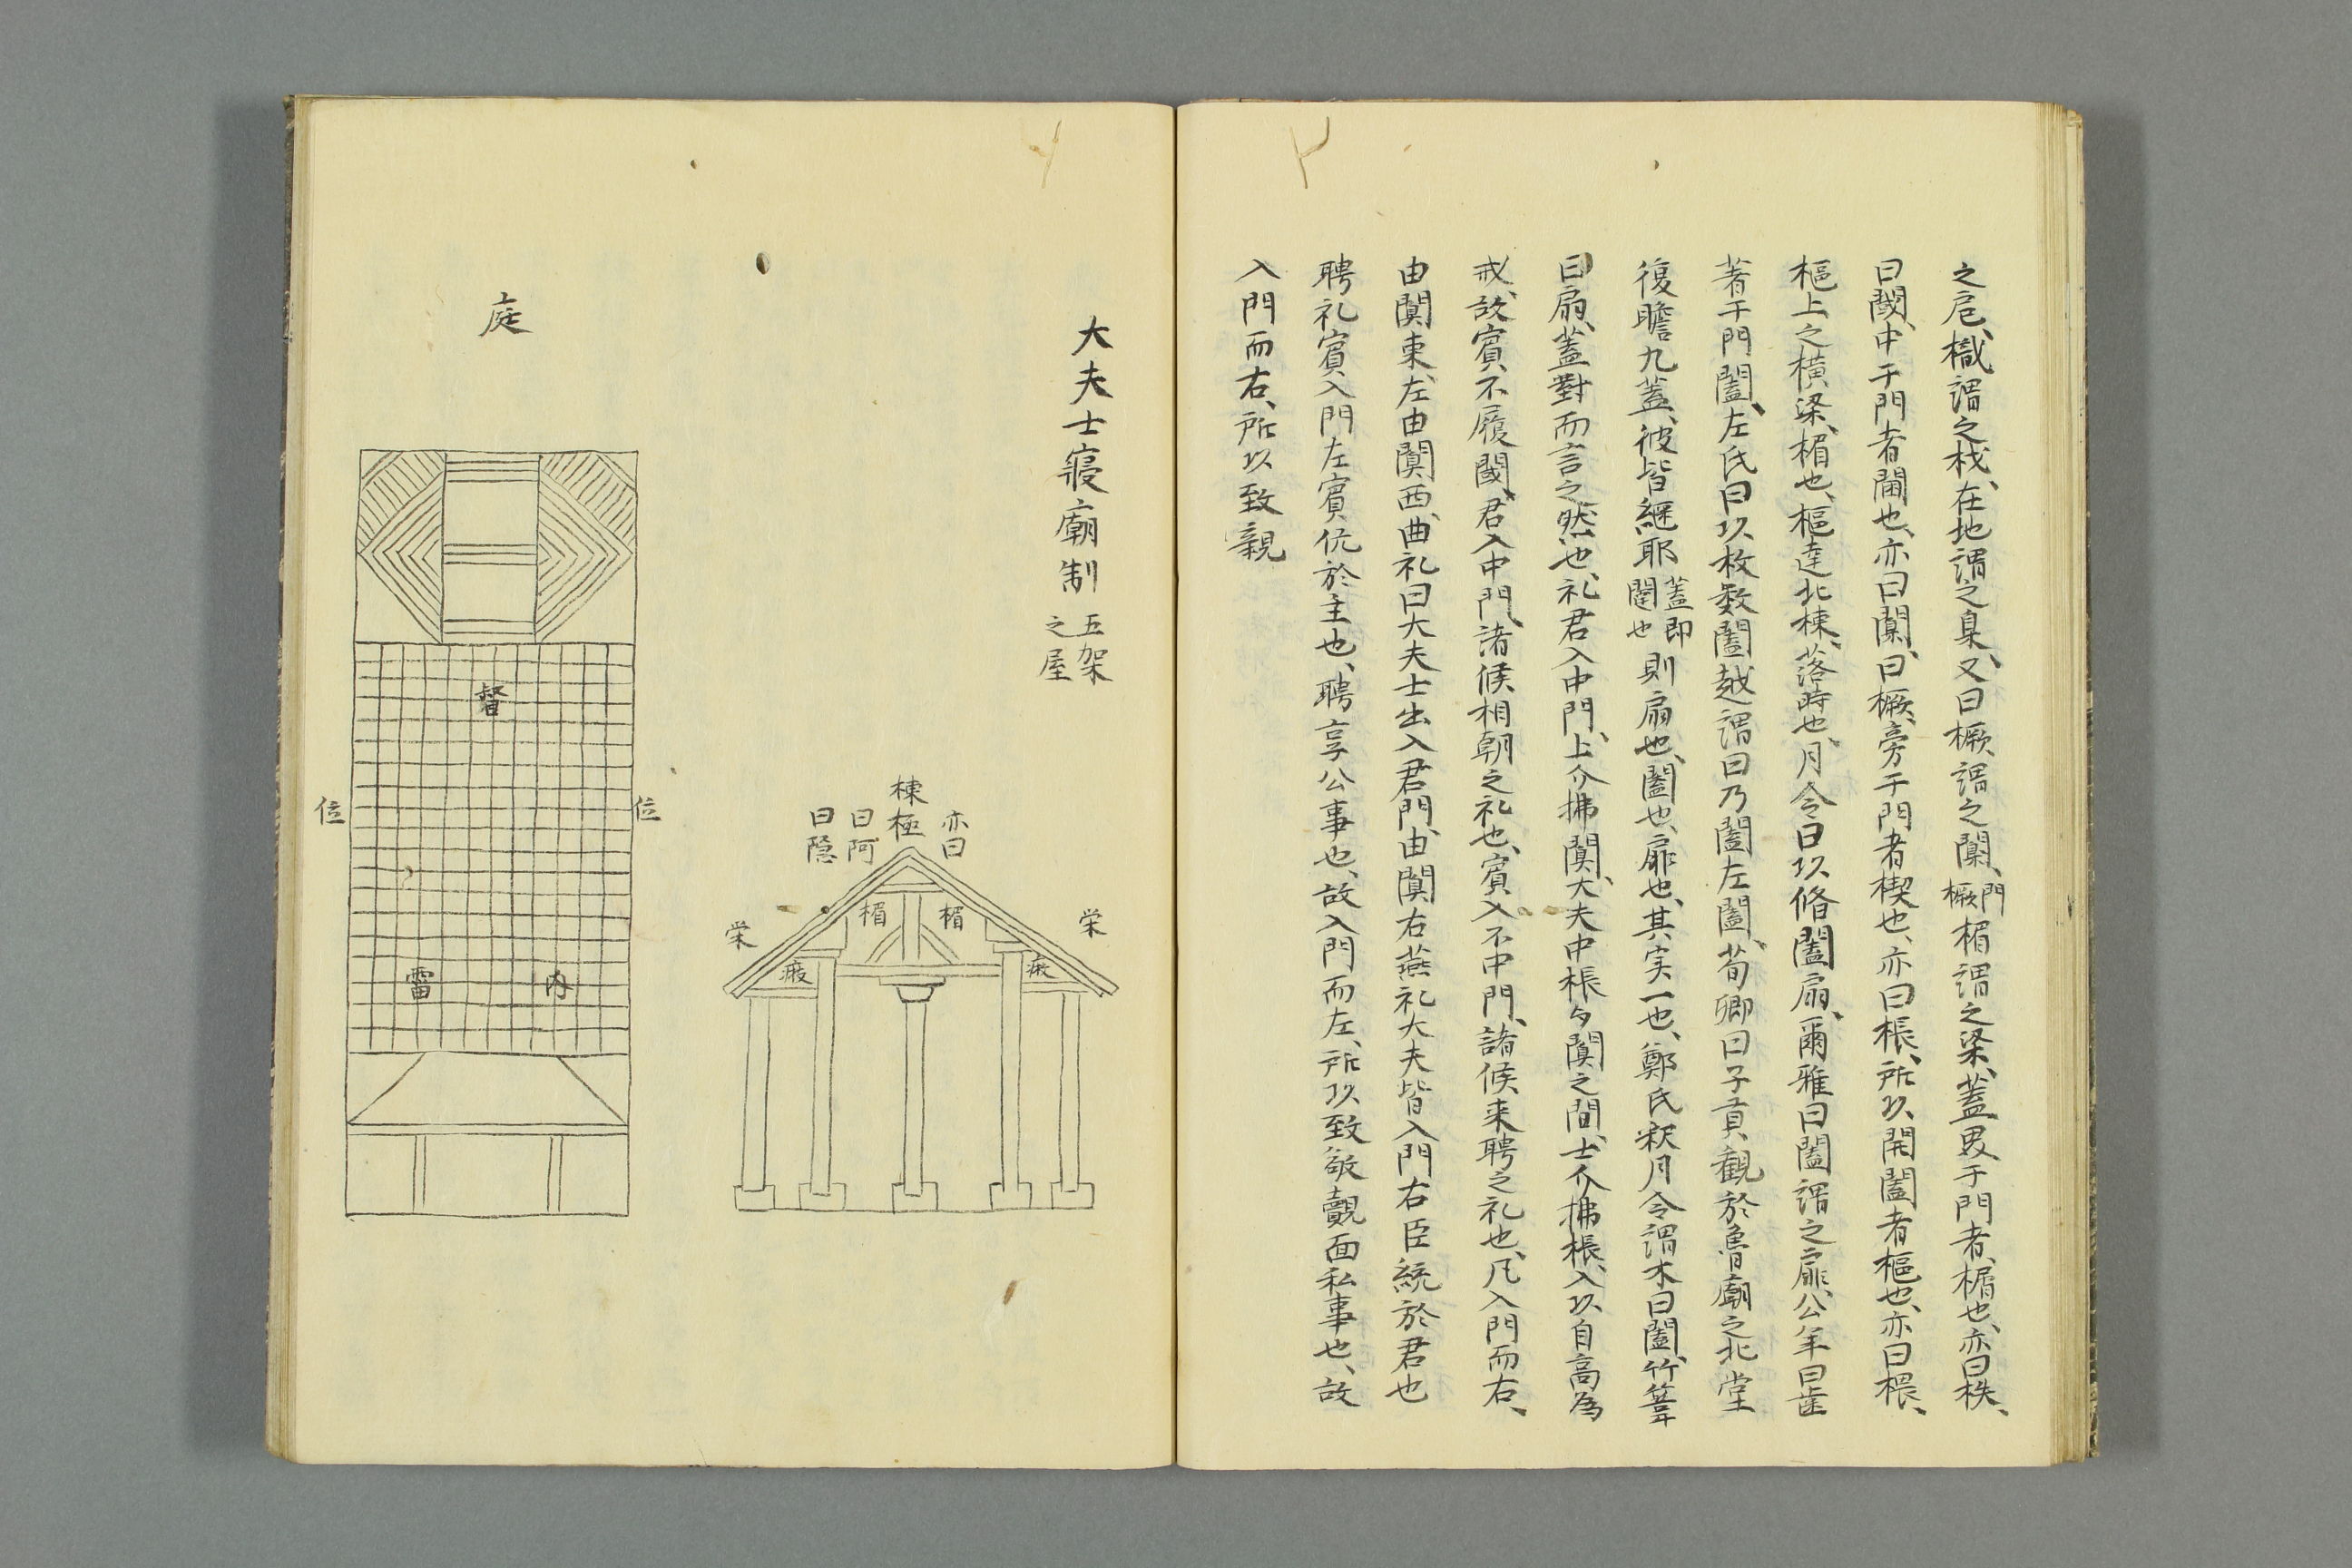 之扂、樴謂之栈、在地謂之臬、又曰橛、謂之闑、門橛楣謂之梁、蓋畟于門者、楣也、亦曰柣、
曰閾、中于門者闑也、亦曰闑、曰橛、旁于門者楔也、亦曰棖、所以開闔者樞也、亦曰椳、
樞上之横梁、楣也、樞達北棟、落時也、月令曰以脩闔扇、爾雅曰闔謂之扉、公羊曰齒
著于門闔、左氏曰以枚数闔越謂曰乃闔左闔、荀卿曰子貢觀於魯廟之北堂
復瞻九蓋、彼皆継耶蓋即闔也則扇也、闔也、扉也、其実一也、鄭氏釈月令謂木曰闔、竹葦
曰扇、蓋對而言之然也、礼君入中門、上介拂闑、大夫中棖与闑之間、士介拂棖、入以自高為
戒、故賓不履閾、君入中門、諸侯相朝之礼也、賓入不中門、諸侯来聘之礼也、凡入門而右、
由闑東、左由闑西、曲礼曰大夫士出入君門、由闑右燕礼大夫皆入門右臣統於君也
聘礼賓入門左賓伉於主也、聘享公事也、故入門而左、所以致敬覿面私事也、故
入門而右、所以致親
大夫士寢廟制 五架之屋
亦曰
棟極
曰阿
曰隐
栄
楣
楣
栄
庪
庪
庭
督
位
位
内
霤